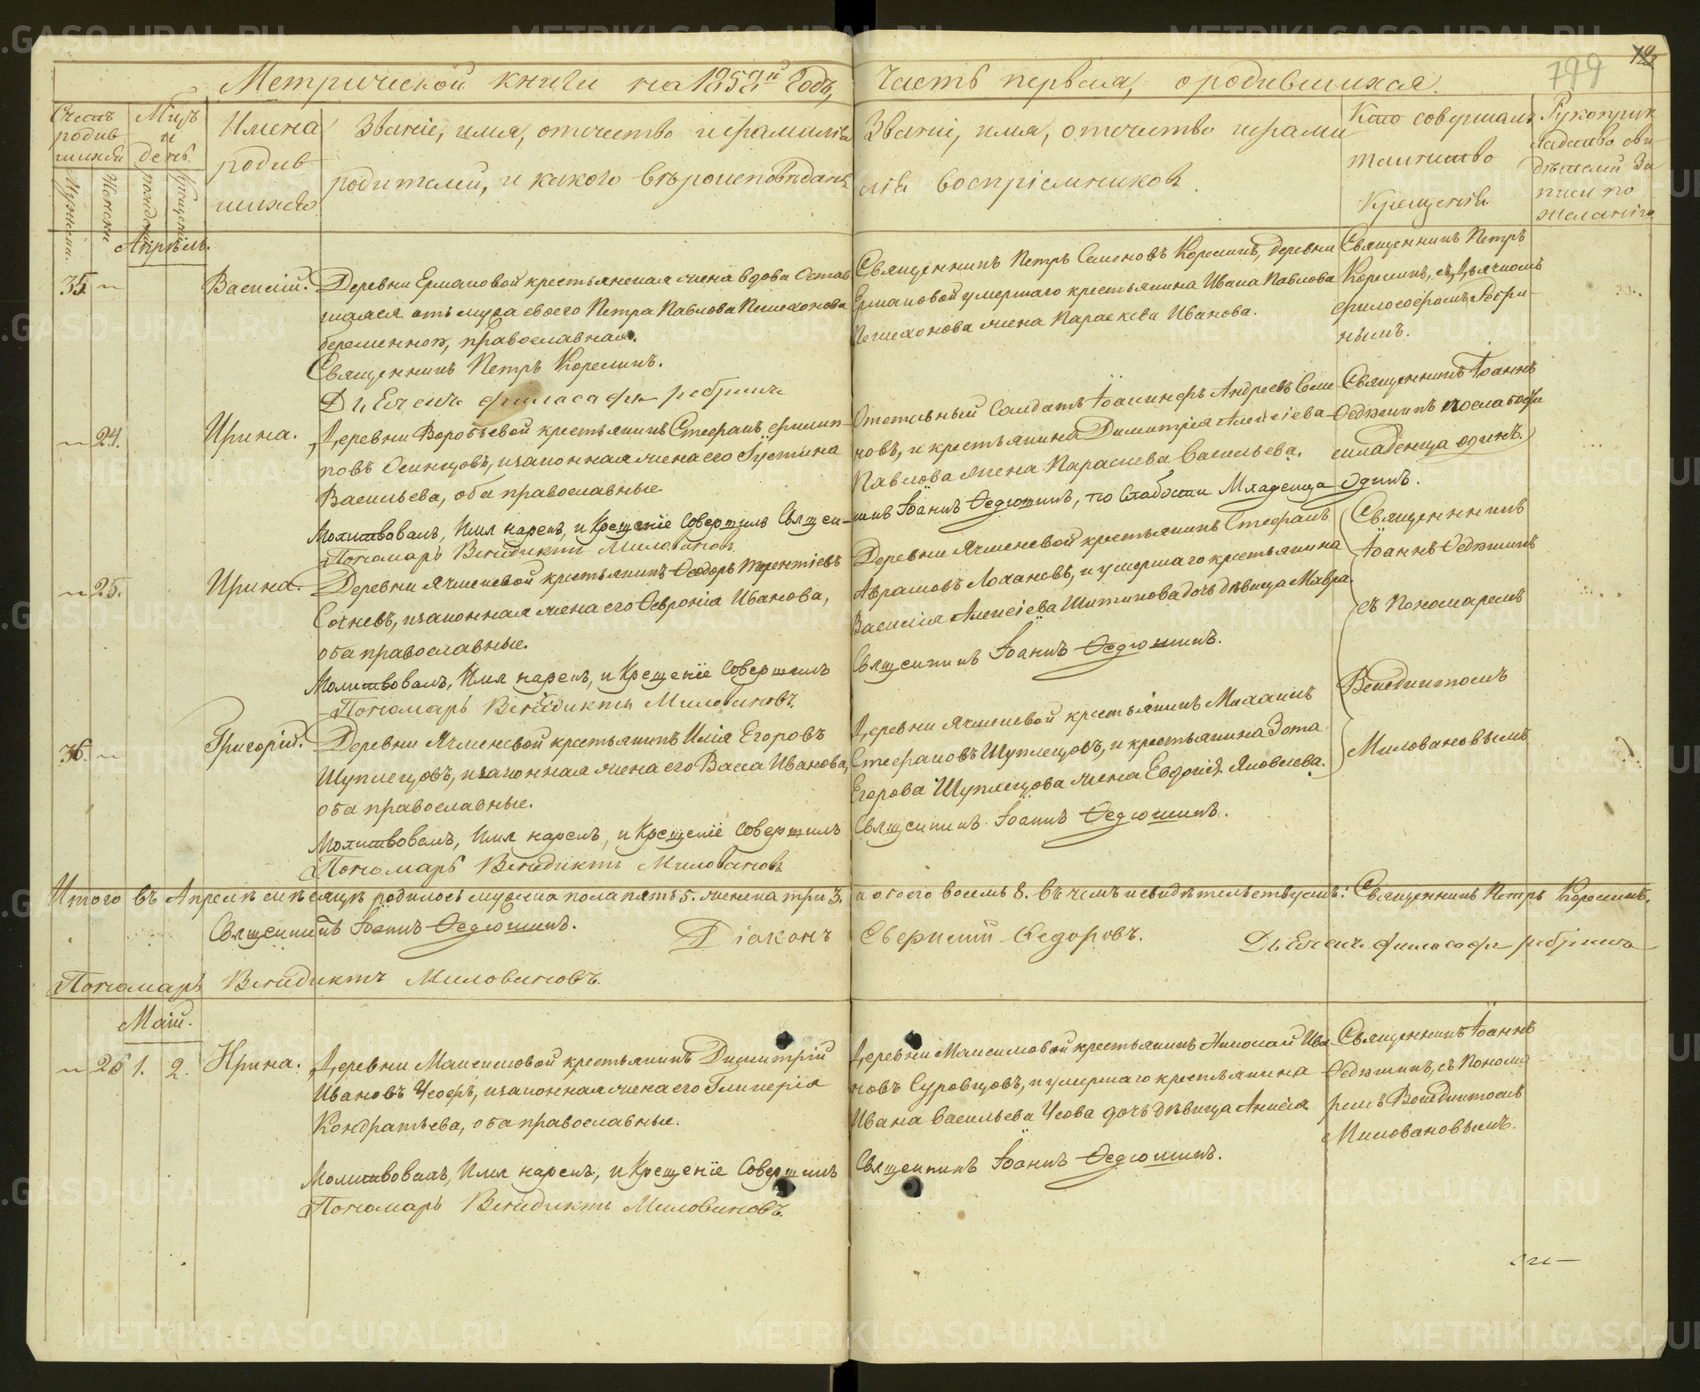 Метрической книги на 1859й Годъ,
Часть первая, о родившихся.
799
Счетъ родив шихся
Мцъ и день.
Имена родив шихся
Званіе, имя, отчество и фамилія
родителей, и какого вѣроисповѣданія
Званіе, имя, отчество и фами
лія воспріемниковъ.
Кто совершалъ
таинство
Крещенія
Рукоприк
ладство сви
дѣтелей за
писи по
желанію
Мужеска.
Женска
рожденія
крещенія
Апрѣль.
35.
Василій.
Деревни Ермаковой крестьянская жена вдова Остав
шаяся отъ мужа своего Петра Павлова Пешехонова
беременною, православная.
Священникъ Петръ Корелинъ.
Священникъ Петръ Семеновъ Корелинъ, деревни
Ермаковой умершаго крестьянина Ивана Павлова
Пешехонова жена Параскева Иванова.
Священникъ Петръ
Корелинъ, съ Дьячкомъ
философомъ Ребри-
нымъ.
24.
Ирина.
Деревни Воробьевой крестьянинъ Стефанъ филип-
повъ Осинцовъ, и законная жена его Іустина
Васильева, оба православные
Молитвовалъ, Имя нарекъ, и Крещеніе Совершилъ Священ-
Пономарь Венедиктъ Миловановъ
Отставный Солдатъ Іоакинфъ Андреевъ Семе
новъ, и крестьянина Димитрія Алексіева
Павлова жена Параскева Васильева.
никъ Іоаннъ Ѳедюшинъ, по Слабости Младенца Одинъ.
Священникъ Іоаннъ
Ѳедюшинъ по слабости
младенца одинъ.
25.
Ирина.
Деревни Ячменевой крестьянинъ Ѳеодоръ Терентіевъ
Сочневъ, и законная жена его Ѳевронія Иванова,
оба православные.
Молитвовалъ, Имя нарекъ, и Крещеніе Совершилъ
Пономарь Венедиктъ Миловановъ.
Деревни Ячменевой крестьянинъ Стефанъ
Аврамовъ Лохановъ, и умершаго крестьянина
Василія Алексіева Шитикова дочь дѣвица Мавра
Священникъ Іоаннъ Ѳедюшинъ.
Священникъ
Іоаннъ Ѳедюшинъ
съ Пономаремъ
Венедиктомъ
Миловановымъ
36.
Григорій.
Деревни Ячменевой крестьянинъ Илія Егоровъ
Шуплецовъ, и законная жена его Васса Иванова,
оба православные.
Молитвовалъ, Имя нарекъ, и Крещеніе Совершилъ
Пономарь Венедиктъ Миловановъ
Деревни Ячменевой крестьянинъ Михаилъ
Стефановъ Шуплецовъ, и крестьянина Зота
Егорова Шуплецова жена Евдокія Яковлева.
Священникъ Іоаннъ Ѳедюшинъ.
Итого въ Апрелѣ мѣсяцѣ родилось мужска пола пять 5. женска три 3. а обоего восемь 8. въ чемъ и свидѣтельствуемъ: Священникъ Петръ Корелинъ.
Священникъ Іоаннъ Ѳедюшинъ. Діаконъ Ѳедоровъ.
Пономарь Венедиктъ Миловановъ.
Май.
26 1. 2.
Ирина.
Деревни Максимовой крестьянинъ Димитрій
Ивановъ Чесовъ, и законная жена его Гликерія
Кондратьева, оба православные.
Молитвовалъ, Имя нарекъ, и Крещеніе Совершилъ
Пономарь Венедиктъ Миловановъ.
Деревни Максимовой крестьянинъ Николай Ива
новъ Суровцовъ, и умершаго крестьянина
Ивана Васильева Чесова дочь дѣвица Анисія
Священникъ Іоаннъ Ѳедюшинъ.
Священникъ Іоаннъ
Ѳедюшинъ, съ Понома
ремъ Венедиктомъ
Миловановымъ.
METRIKI.GASO-URAL.RU